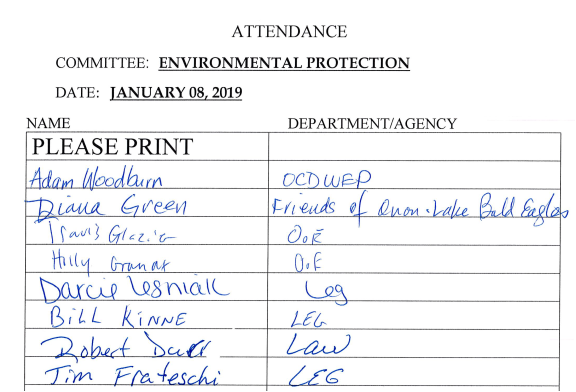 ATTENDANCE
COMMITTEE: ENVIRONMENTAL PROTECTION
DATE: JANUARY 08, 2019
NAME DEPARTMENT/AGENCY
PLEASE PRINT
Adam Woodburn OCDWEP
Diana Green Friends of Onon. Lake Bald Eagles
Travis Glazier O.o.E
Hilly O.o.E
Darcie Lesniak Leg
BILL KINNE LEG
Robert Durr Law
Tim Frateschi LEG